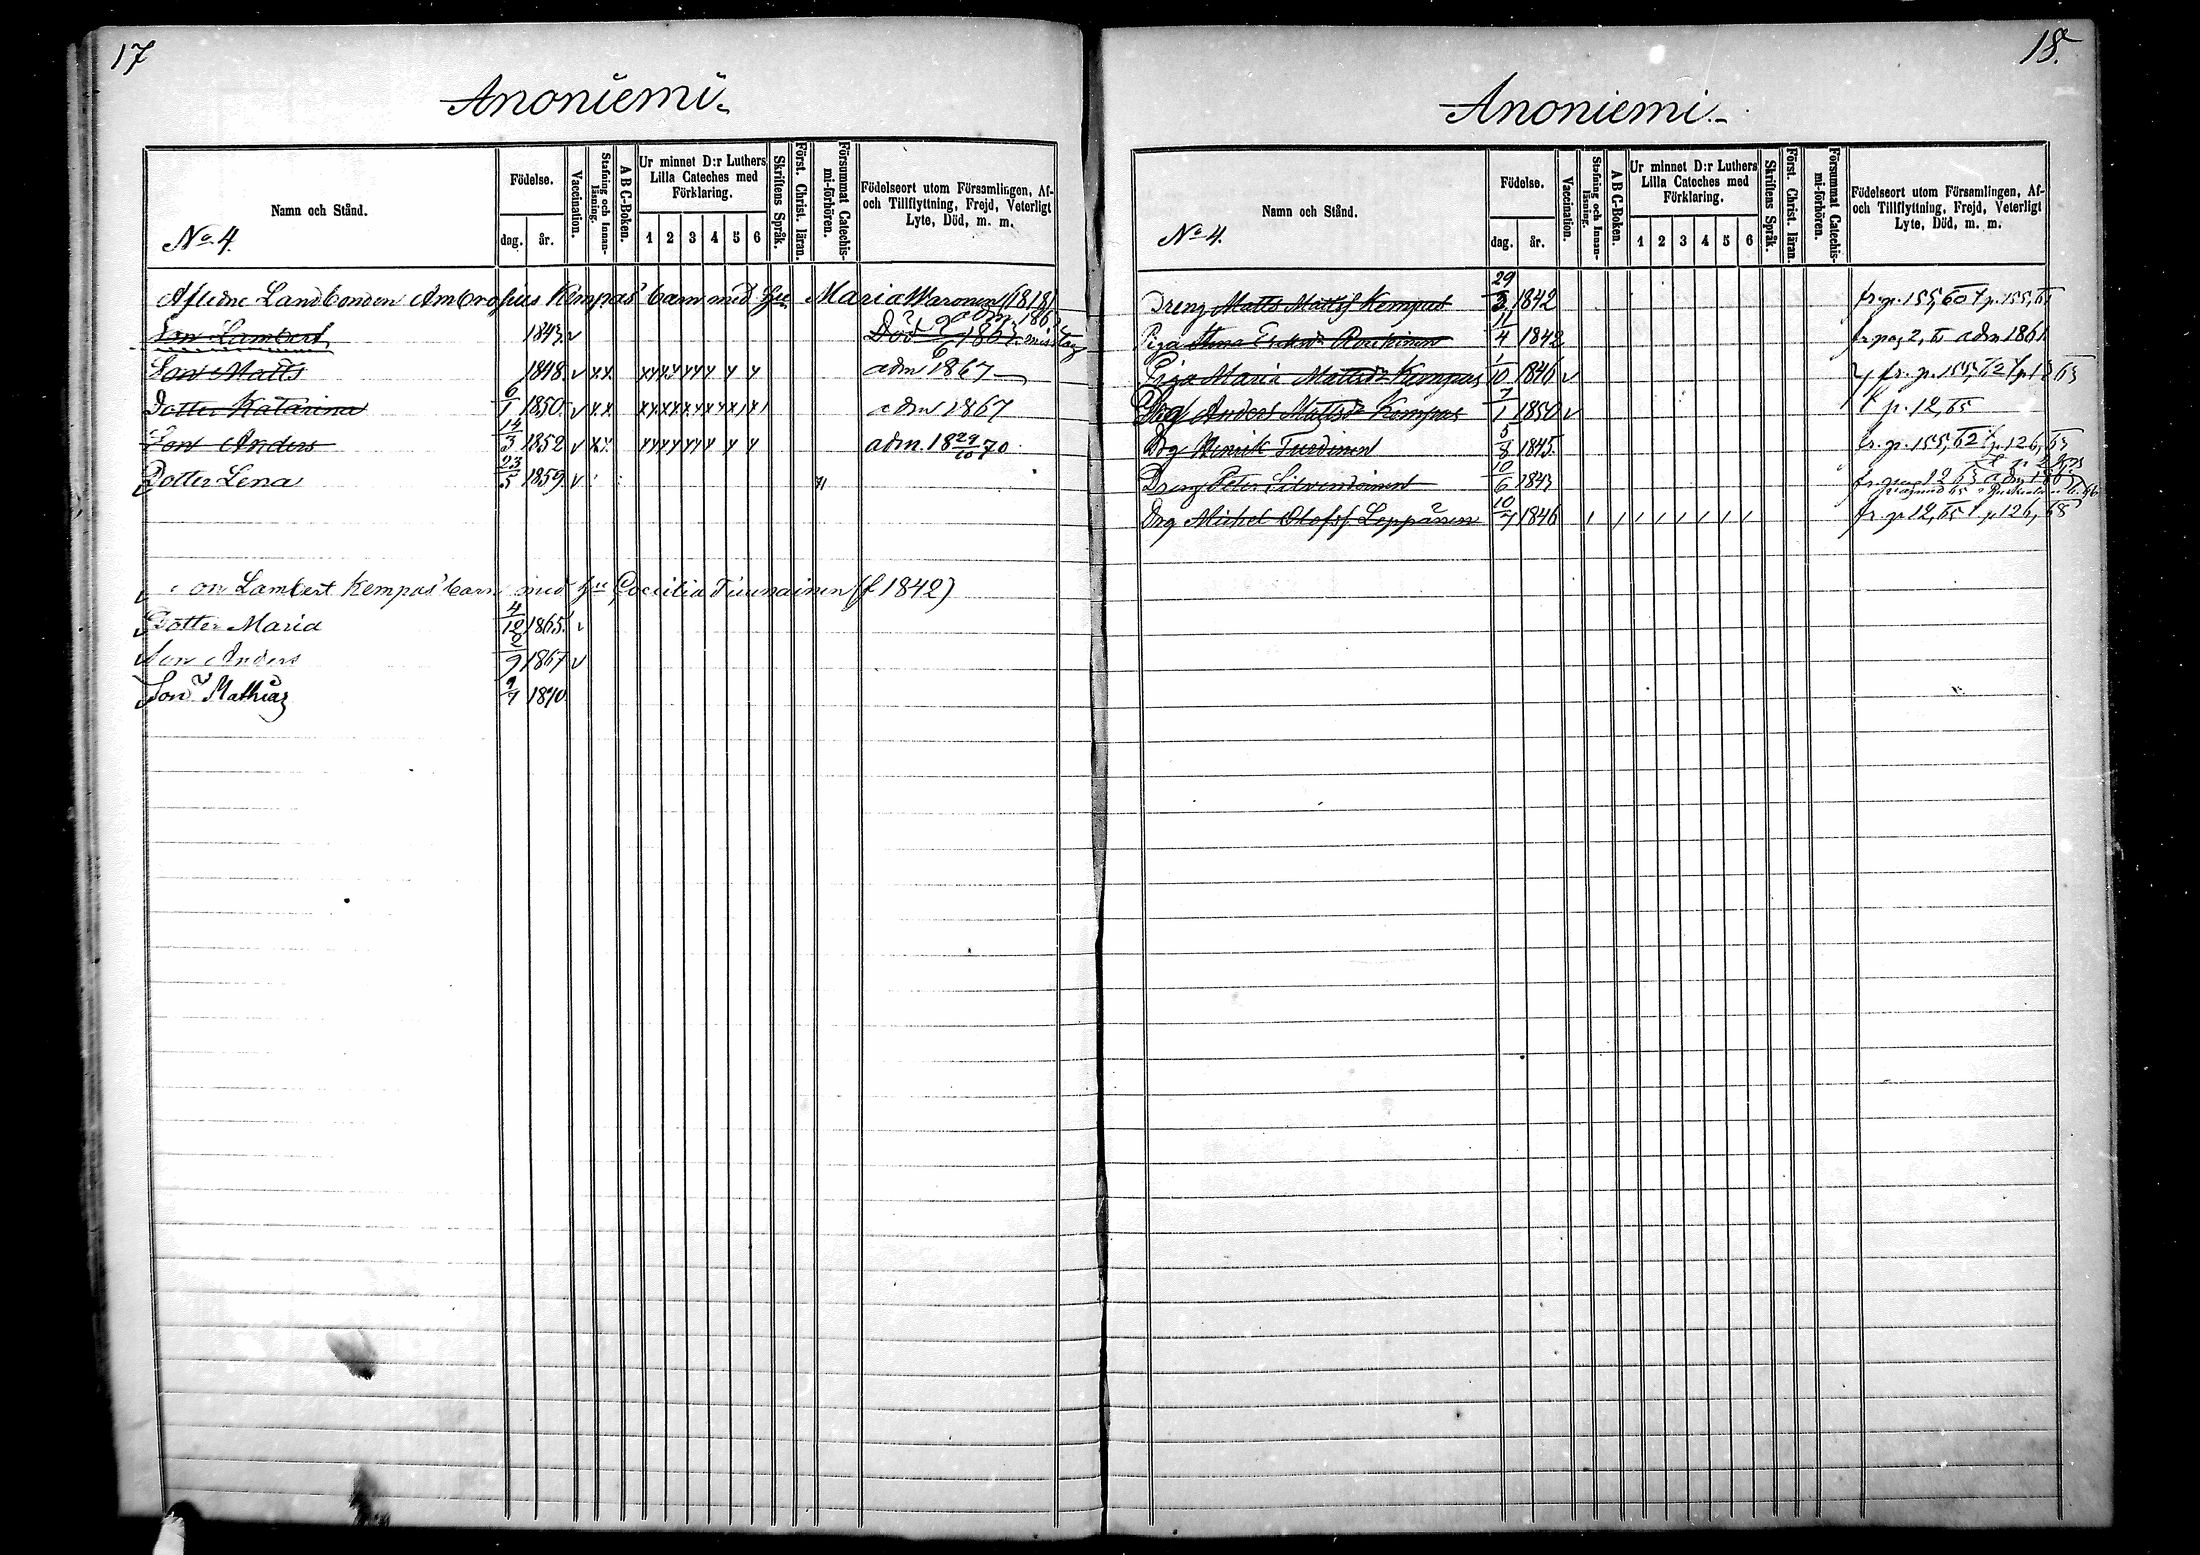 17
Anoniemi
Namn och Stånd.
No 4.
Födelse.
dag. år.
Vaccination.
Stafning och Innan-läsning.
A B C-Boken.
Ur minnet D:r Luthers Lilla Cateches med Förklaring.
1 2 3 4 5 6
Skriftens Språk.
Först. Christ. läran.
Försummat Catechis-mi-förhören.
Födelseort utom Församlingen, Af- och Tillflyttning, Frejd, Veterligt Lyte, Död, m. m.
Aflidne Landbonden Ambrosius Kempas' barn med Hu Maria Waronen (1818)
Son Lambert 1843 v Död 1863 misstag adm. 186
Son Matts 1848 v x x adm 1867
Dotter Katarina 6/1 1850 v x x adm 1867
Son Anders 14/3 1852 v x x adm. 18 29/10 70.
Dotter Lena 23/5 1859 v
on Lambert Kempas' barn med hu Coecilia Tiunainen (f 1842)
Dotter Maria 4/12 1865
Son Anders 2/9 1867 v
Son Mathias 9/7 1870
18.
Anoniemi.
Namn och Stånd.
No 4.
Födelse.
dag. år.
Vaccination.
Stafning och Innan-läsning.
A B C-Boken.
Ur minnet D:r Luthers Lilla Cateches med Förklaring.
1 2 3 4 5 6
Skriftens Språk.
Först. Christ. läran.
Försummat Catechis-mi-förhören.
Födelseort utom Församlingen, Af- och Tillflyttning, Frejd, Veterligt Lyte, Död, m. m.
Dreng Matts Mattsf Kempas 29/3 1842 fr. p. 155, 60 t p. 155, 61
Piga Anna Ericsd. 11/4 1842 fr. pag 2, 61 adm 1861
Piga Maria Mattsd. Kempas 1/10 1846 v fr. p. 155, 62 t p 12 63
Drg Anders Mattss Kempas 7/1 1850 v t p. 12, 65
Drg Henrik Turdinen 5/8 1845. fr. p. 155, 62 t p. 126, 63
Dreng Peter Silvendoinen 10/6 1843 fr. pag 12 63
Drg Michel Olofsf. Leppänen 10/7 1846 fr. p 12, 65 t p 126, 68